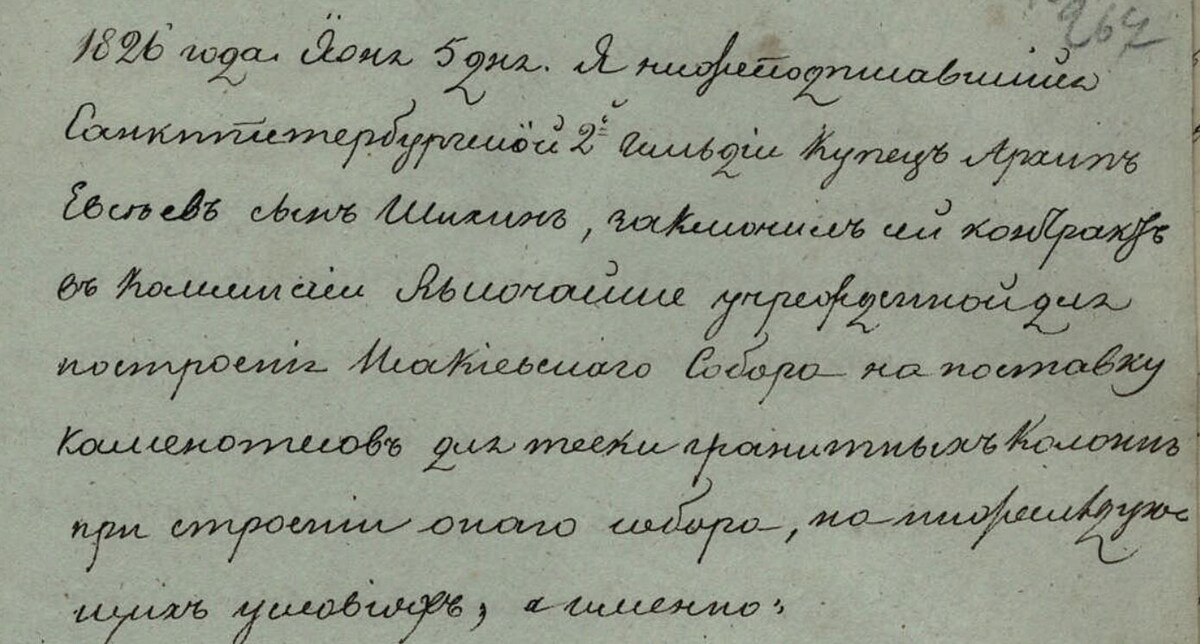 267
1826 года Июня 5 дня. Я нижеподписавшийся
Санктпетербургской 2й Гильдіи Купецъ Архипъ
Евстьевъ сынъ Шихинъ, заключилъ сей контрактъ
въ Коммисіи Высочайше учрежденной для
построенія Исакіевскаго Собора на поставку
каменотесовъ для тески гранитныхъ Колоннъ
при строеніи онаго собора, на нижеслѣдую-
щихъ условіяхъ, а именно: